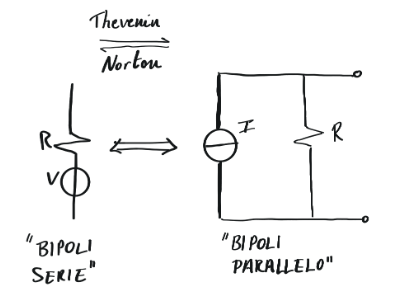 Thevenin
Norton
R
V
I
R
"BIPOLI
SERIE"
"BIPOLI
PARALLELO"